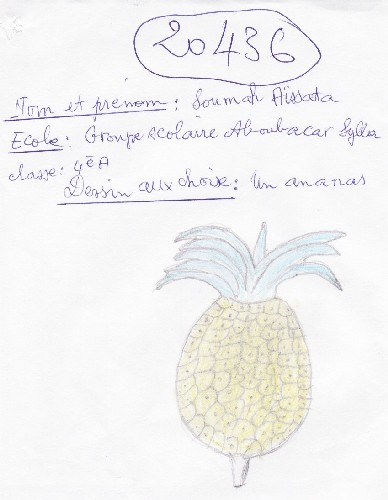 20436
Nom et prénom : Soumah Aïssata
Ecole : Groupe scolaire Aboubacar Sylla
classe : 4è A
Dessin aux choix : Un ananas